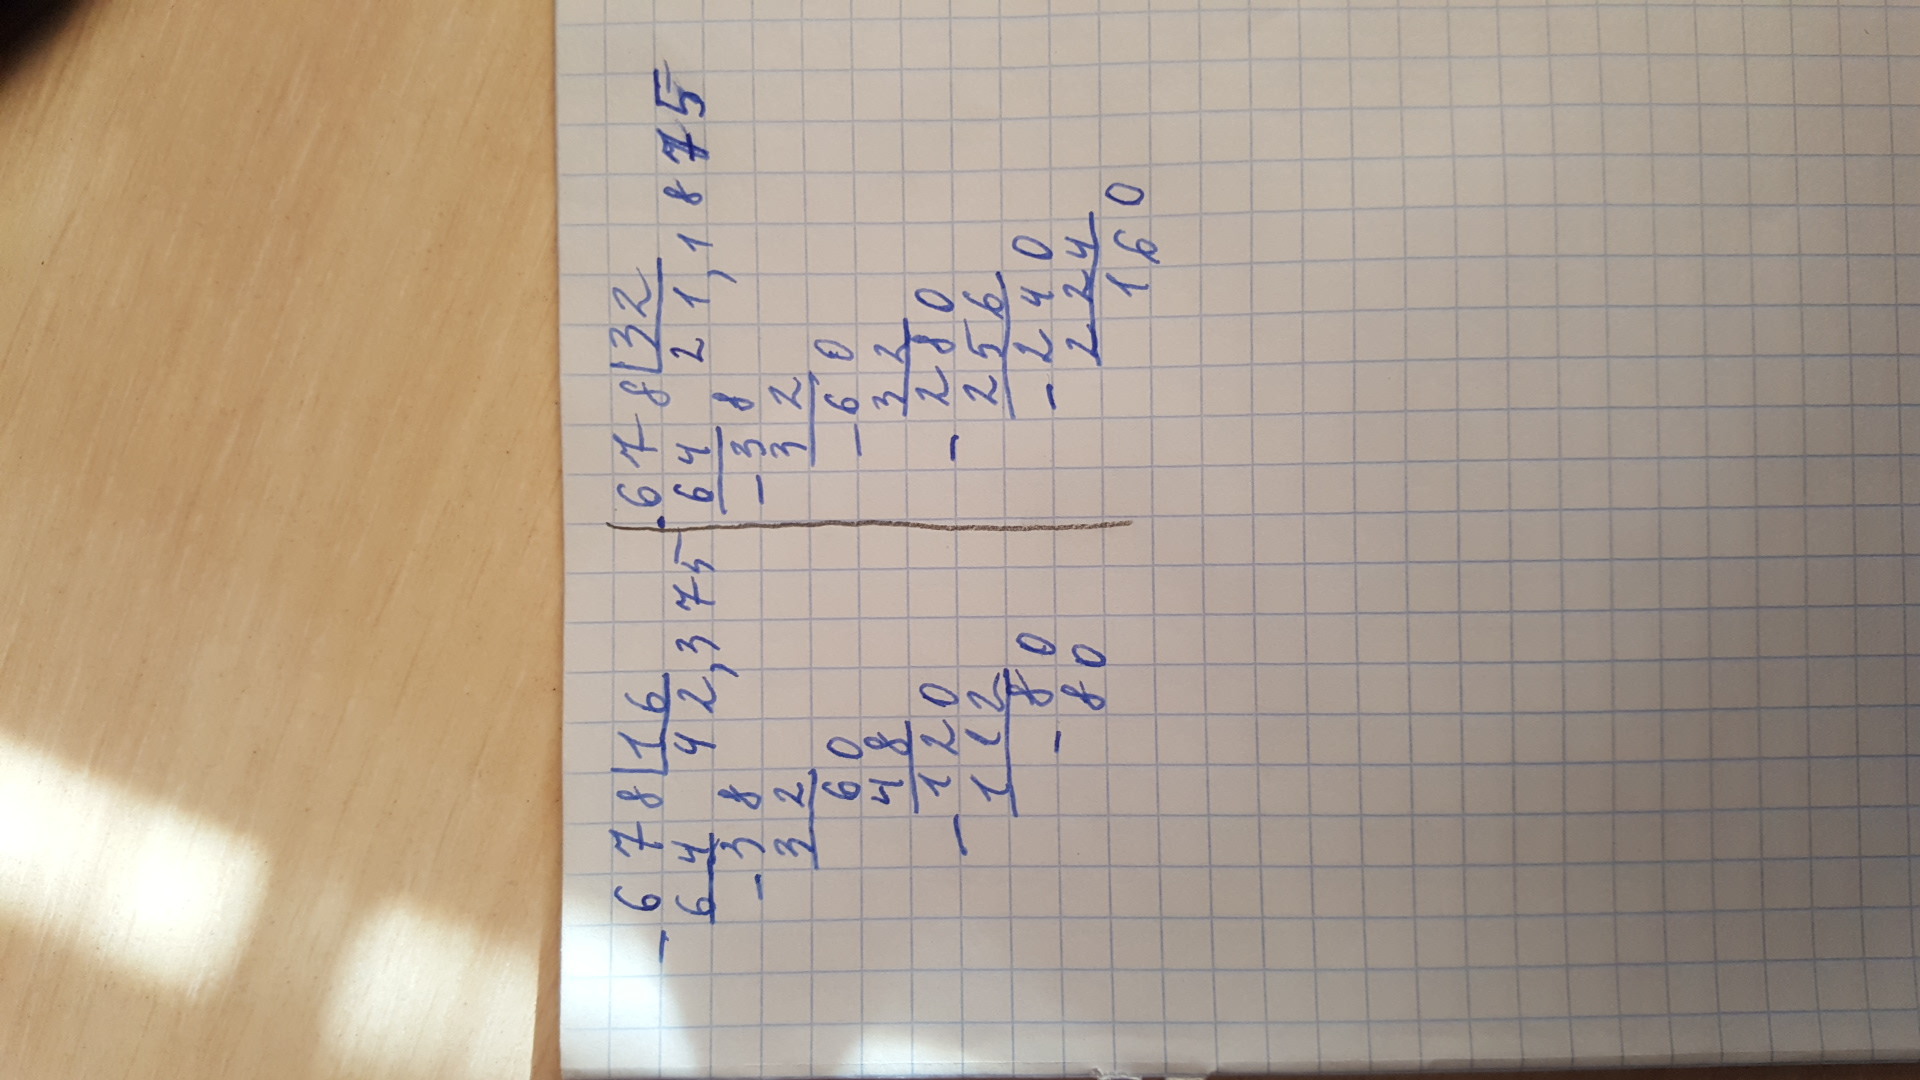 - 6 7 8 | 1 6
6 4 4 2 , 3 7 5
- 3 8
3 2
6 0
4 8
- 1 2 0
1 1 2
- 8 0
8 0
6 7 8 | 3 2
6 4 2 1 , 1 8 7 5
- 3 8
3 2
- 6 0
3 2
- 2 8 0
2 5 6
- 2 4 0
2 2 4
1 6 0